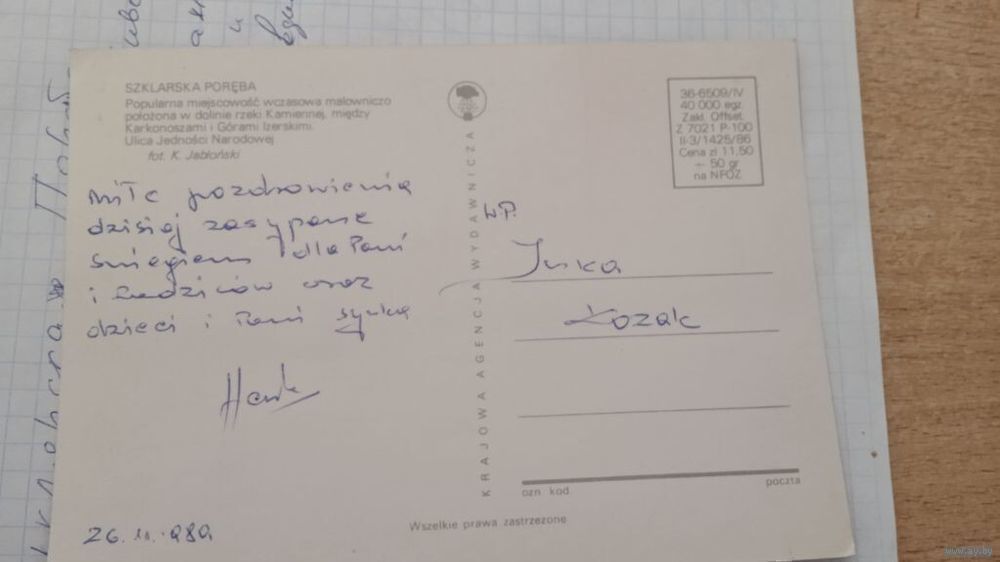 SZKLARSKA PORĘBA
Popularna miejscowość wczasowa malowniczo
położona w dolinie rzeki Kamiennej, między
Karkonoszami i Górami Izerskimi.
Ulica Jedności Narodowej
fot. K. Jabłoński
Miłe pozdrowienia
dzisiaj zasypane
śniegiem dla Pani
i Rodziców oraz
dzieci i Pani synka
26. 11.
KRAJOWA AGENCJA WYDAWNICZA
36-6509/IV
40 000 egz.
Zakl. Offset.
Z 7021 P-100
II-3/1425/86
Cena zł 11,50
+ 50 gr
na NFOZ
W.P.
Kozak
ozn. kod.
poczta
Wszelkie prawa zastrzeżone
www.ay.by